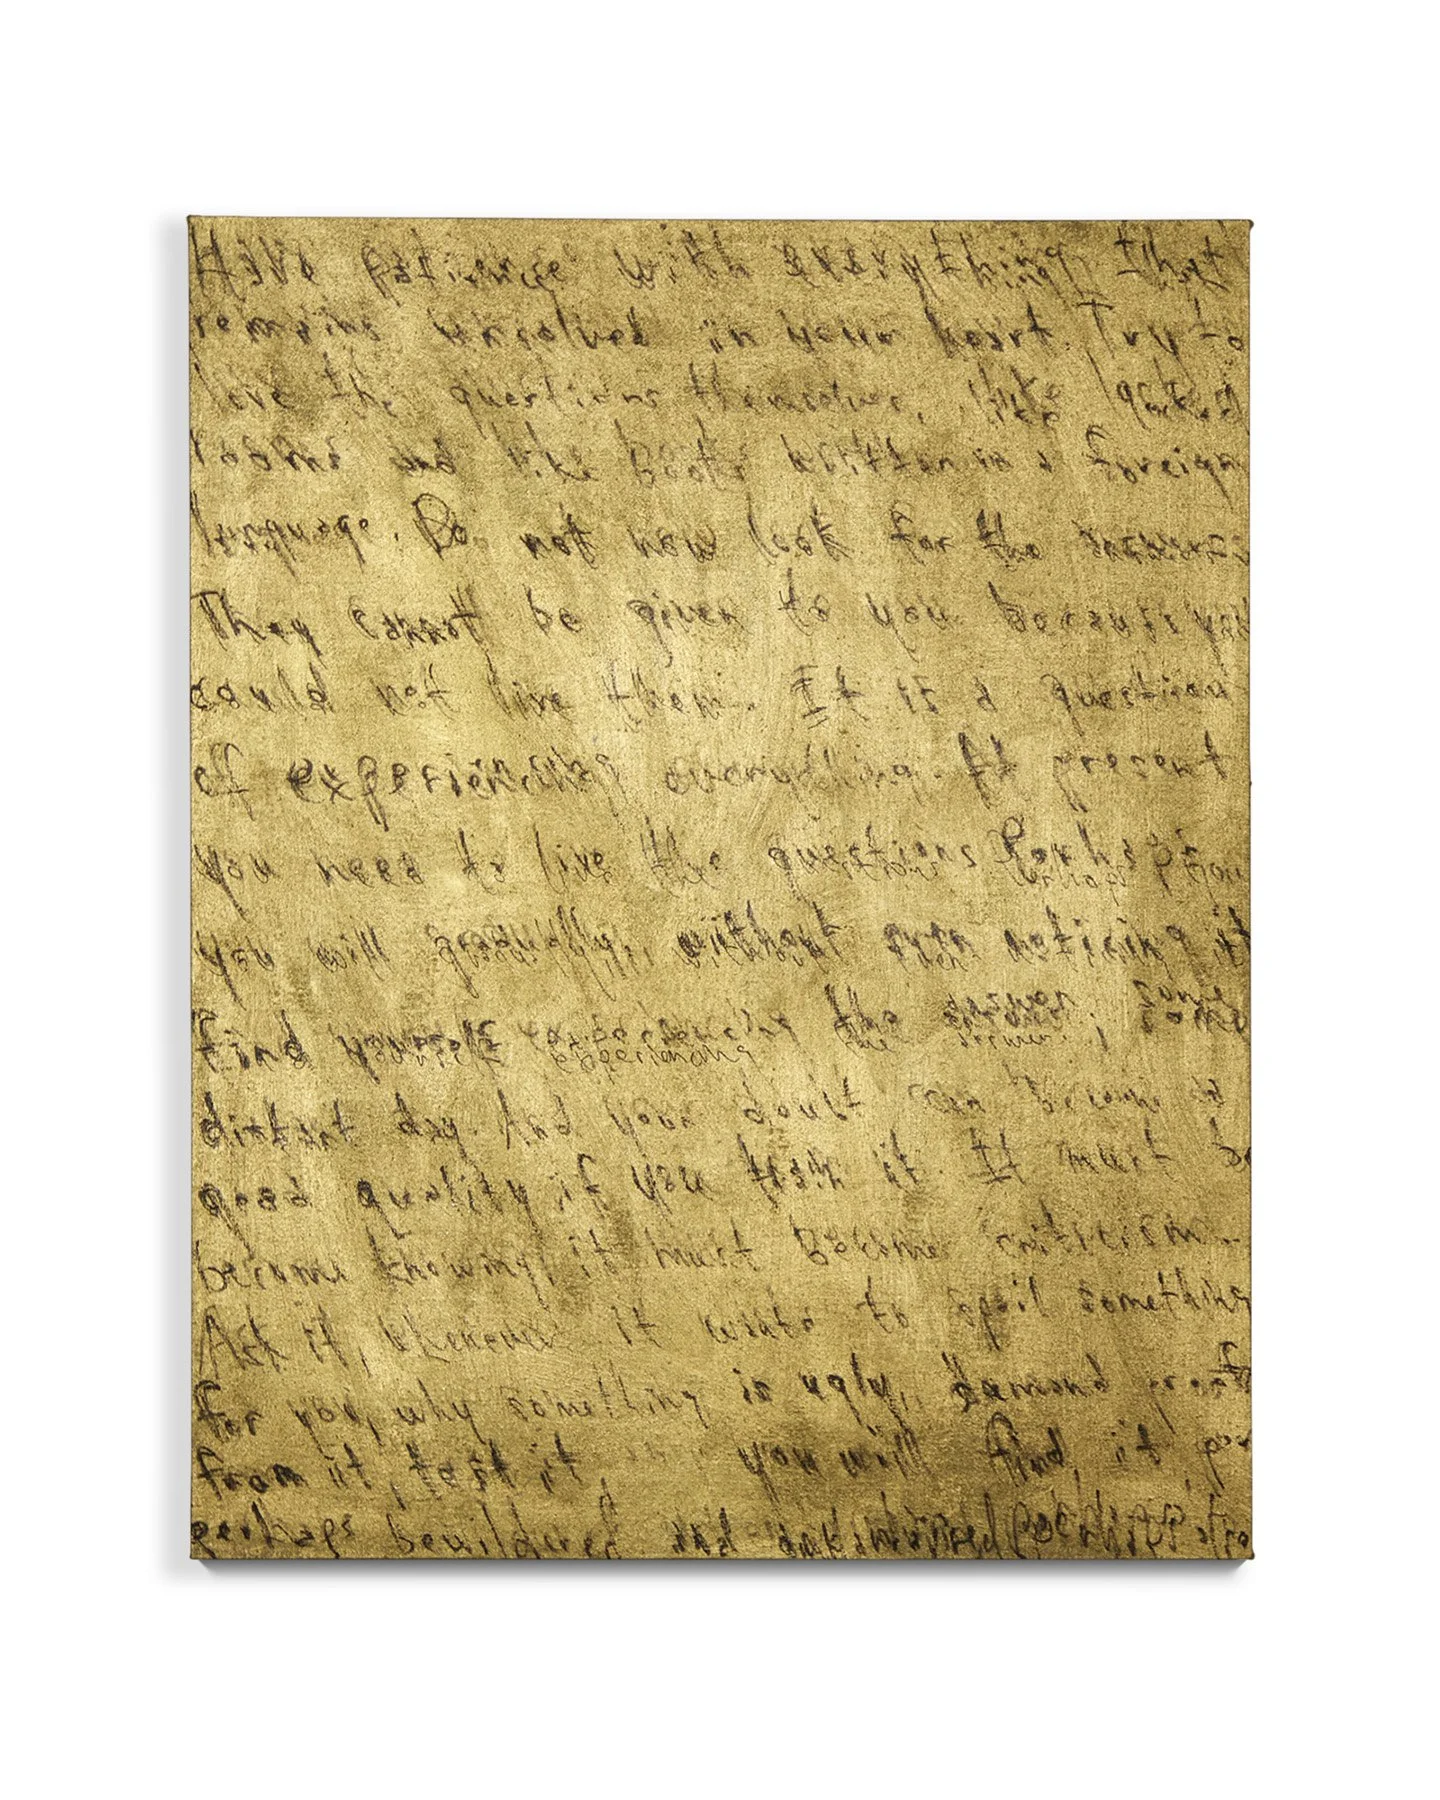 Have patience with everything that
remains unsolved in your heart. Try to
love the questions themselves, like locked
rooms and like books written in a foreign
language. Do not now look for the answers
They cannot be given to you because you
could not live them. It is a question
of experiencing everything. At present
you need to live the questions Perhaps
you will gradually, without even noticing it
find yourself experiencing the answer, some
distant day. And your doubt can become a
good quality if you train it. It must be
become knowing, it must become criticism.
Ask it, whenever it wants to spoil something
for you, why something is ugly, demand proofs
from it, test it you will find it per
perhaps bewildered and